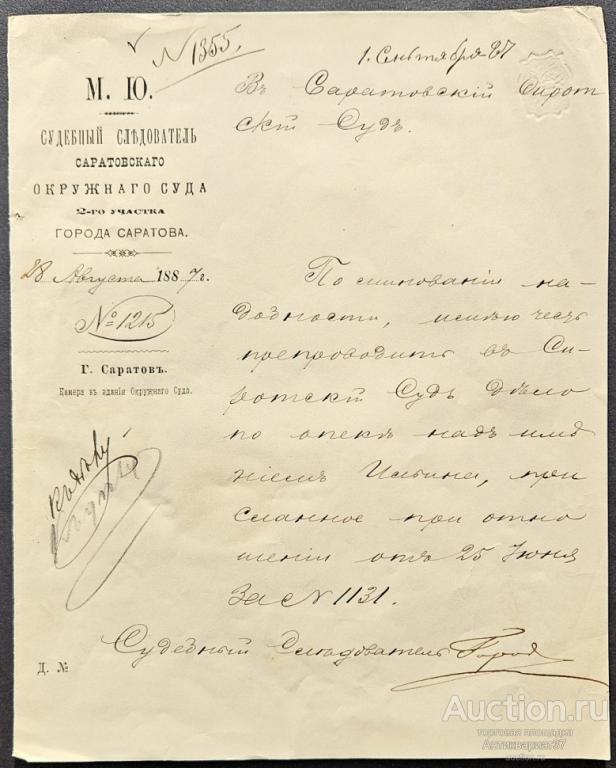 N 1355
1. Сентября 87
М. Ю.
СУДЕБНЫЙ СЛѢДОВАТЕЛЬ
САРАТОВСКАГО
ОКРУЖНАГО СУДА
2-ГО УЧАСТКА
ГОРОДА САРАТОВА.
28 Августа 1887 г.
№ 1215
Г. Саратовъ.
Камера въ зданіи Окружнаго Суда.
Въ Саратовскій Сирот
скій Судъ.
По миновании на-
добности, имѣю честь
препроводить въ Си-
ротскій Судъ дѣло
по опекѣ надъ имѣ
ніемъ Ильина, при
сланное при отно
шеніи отъ 25 Июня
За N 1131.
Судебный Слѣдователь
Д. №
Auction.ru
торговая площадка
Антиквариат97
auction.ru